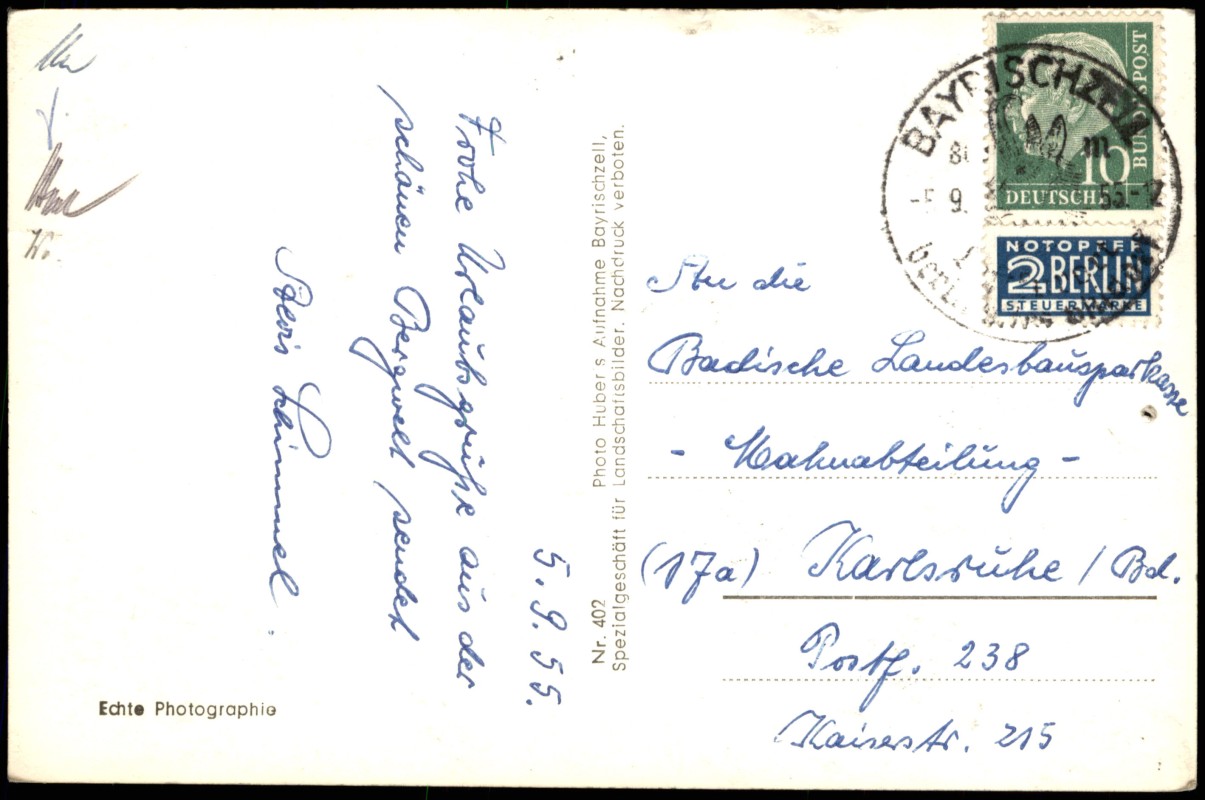 5. 9. 55.
Frohe Urlaubsgrüße aus der
schönen Bergwelt sendet
Schimmel
Echte Photographie
Nr. 402 Photo Huber s Aufnahme Bayrischzell,
Spezialgeschäft für Landschaftsbilder. Nachdruck verboten.
BAYRISCHZELL
800 m
DEUTSCHE
BUNDESPOST
10
NOTOPFER
2 BERLIN
STEUERMARKE
An die
Badische Landesbausparkasse
- Mahnabteilung -
(17a) Karlsruhe / Bd.
Postf. 238
Kaiserstr. 215